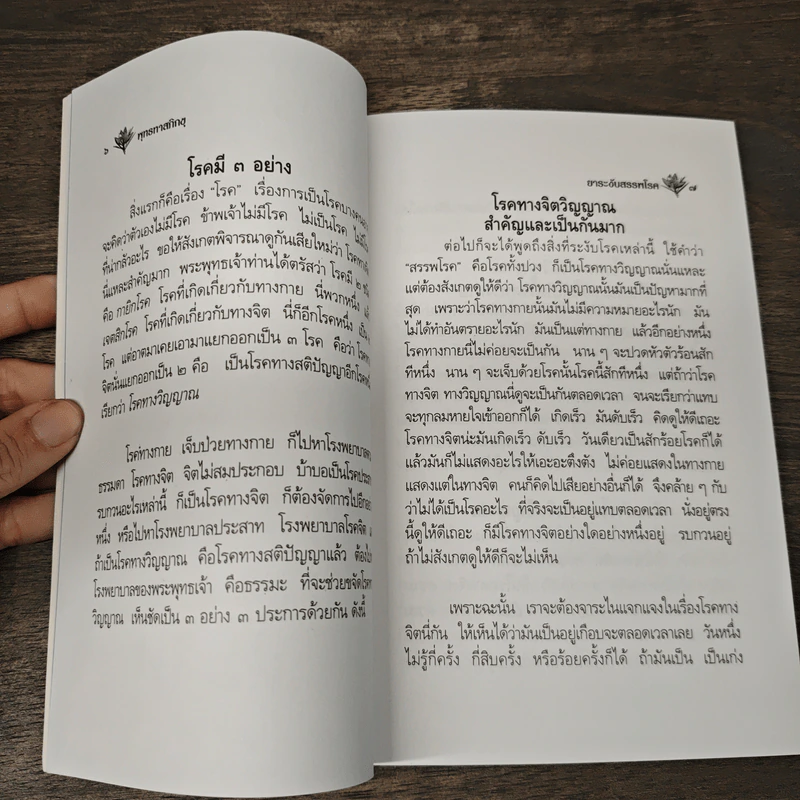 ๖ พุทธทาสภิกขุ
โรคมี ๓ อย่าง
สิ่งแรกก็คือเรื่อง "โรค" เรื่องการเป็นโรคบางคน
จะคิดว่าตัวเองไม่มีโรค ข้าพเจ้าไม่มีโรค ไม่เป็นโรค
ที่น่ากลัวอะไร ขอให้สังเกตพิจารณาดูกันเสียใหม่ว่า
นี่แหละสำคัญมาก พระพุทธเจ้าท่านได้ตรัสว่า โรคมี ๒
คือ กายิกโรค โรคที่เกิดเกี่ยวกับทางกาย นี่พวกหนึ่ง
เจตสิกโรค โรคที่เกิดเกี่ยวกับทางจิต นี่ก็อีกโรคหนึ่ง
โรค แต่อาตมาเคยเอามาแยกออกเป็น ๓ โรค คือว่า
จิตนั่นแยกออกเป็น ๒ คือ เป็นโรคทางสติปัญญาอีกโรค
เรียกว่า โรคทางวิญญาณ
โรคทางกาย เจ็บป่วยทางกาย ก็ไปหาโรงพยาบาล
ธรรมดา โรคทางจิต จิตไม่สมประกอบ บ้าบอเป็นโรค
รบกวนอะไรเหล่านี้ ก็เป็นโรคทางจิต ก็ต้องจัดการไป
หนึ่ง หรือไปหาโรงพยาบาลประสาท โรงพยาบาลโรคจิต
ถ้าเป็นโรคทางวิญญาณ คือโรคทางสติปัญญาแล้ว
โรงพยาบาลของพระพุทธเจ้า คือธรรมะ ที่จะช่วยขจัด
วิญญาณ เห็นชัดเป็น ๓ อย่าง ๓ ประการด้วยกัน ดังนี้
ยาระงับสรรพโรค ๗
โรคทางจิตวิญญาณ
สำคัญและเป็นกันมาก
ต่อไปก็จะได้พูดถึงสิ่งที่ระงับโรคเหล่านี้ ใช้คำว่า
"สรรพโรค" คือโรคทั้งปวง ก็เป็นโรคทางวิญญาณนั่นแหละ
แต่ต้องสังเกตดูให้ดีว่า โรคทางวิญญาณนั้นมันเป็นปัญหามากที่
สุด เพราะว่าโรคทางกายนั้นมันไม่มีความหมายอะไรนัก มัน
ไม่ได้ทำอันตรายอะไรนัก มันเป็นแต่ทางกาย แล้วอีกอย่างหนึ่ง
โรคทางกายนี่ไม่ค่อยจะเป็นกัน นาน ๆ จะปวดหัวตัวร้อนสัก
ทีหนึ่ง นาน ๆ จะเจ็บด้วยโรคนั้นโรคนี้สักทีหนึ่ง แต่ถ้าว่าโรค
ทางจิต ทางวิญญาณนี่ดูจะเป็นกันตลอดเวลา จนจะเรียกว่าแทบ
จะทุกลมหายใจเข้าออกก็ได้ เกิดเร็ว มันดับเร็ว คิดดูให้ดีเถอะ
โรคทางจิตน่ะมันเกิดเร็ว ดับเร็ว วันเดียวเป็นสักร้อยโรคก็ได้
แล้วมันก็ไม่แสดงอะไรให้เอะอะตึงตัง ไม่ค่อยแสดงในทางกาย
แสดงแต่ในทางจิต คนก็คิดไปเสียอย่างอื่นก็ได้ จึงคล้าย ๆ กับ
ว่าไม่ได้เป็นโรคอะไร ที่จริงจะเป็นอยู่แทบตลอดเวลา นั่งอยู่ตรง
นี้ดูให้ดีเถอะ ก็มีโรคทางจิตอย่างใดอย่างหนึ่งอยู่ รบกวนอยู่
ถ้าไม่สังเกตดูให้ดีก็จะไม่เห็น
เพราะฉะนั้น เราจะต้องจาระไนแจกแจงในเรื่องโรคทาง
จิตนี่กัน ให้เห็นได้ว่ามันเป็นอยู่เกือบจะตลอดเวลาเลย วันหนึ่ง
ไม่รู้กี่ครั้ง กี่สิบครั้ง หรือร้อยครั้งก็ได้ ถ้ามันเป็น เป็นเก่ง